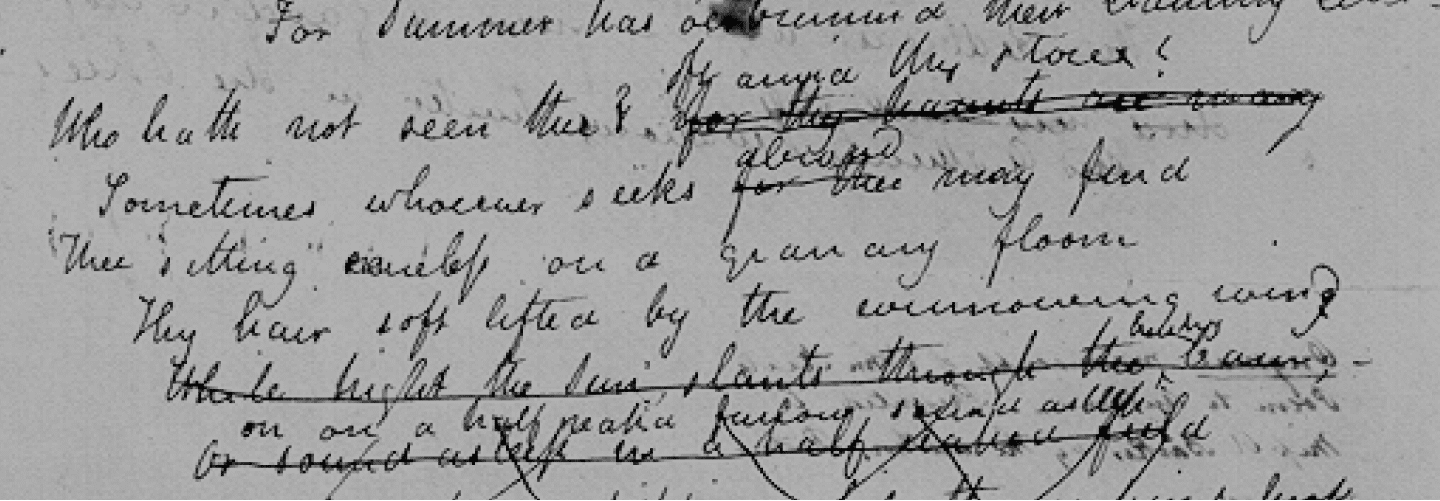 For Summer has o'erbrimm'd their clammy cells
oft amid thy stores?
Who hath not seen thee? for thy haunts are many
abroad
Sometimes whoever seeks for thee may find
Thee sitting careless on a granary floor
Thy hair soft lifted by the winnowing wind
husky
While bright the Sun slants through the barn;-
on on a half reap'd furrow sound asleep
Or sound asleep in a half reaped field